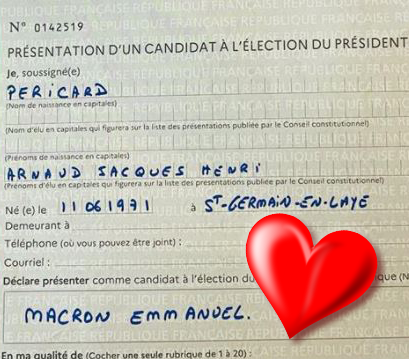 N° 0142519
PRÉSENTATION D'UN CANDIDAT À L'ÉLECTION DU PRÉSIDENT
Je, soussigné(e)
PERICARD
(Nom de naissance en capitales)
(Nom d'élu en capitales qui figurera sur la liste des présentations publiée par le Conseil constitutionnel)
(Prénoms de naissance en capitales)
ARNAUD JACQUES HENRI
(Prénoms d'élu en capitales qui figurera sur la liste des présentations publiée par le Conseil constitutionnel)
Né (e) le 11 06 1971 à ST-GERMAIN-EN-LAYE
Demeurant à
Téléphone (où vous pouvez être joint) :
Courriel :
Déclare présenter comme candidat à l'élection du que (N
MACRON EMMANUEL.
En ma qualité de (Cocher une seule rubrique de 1 à 20) :